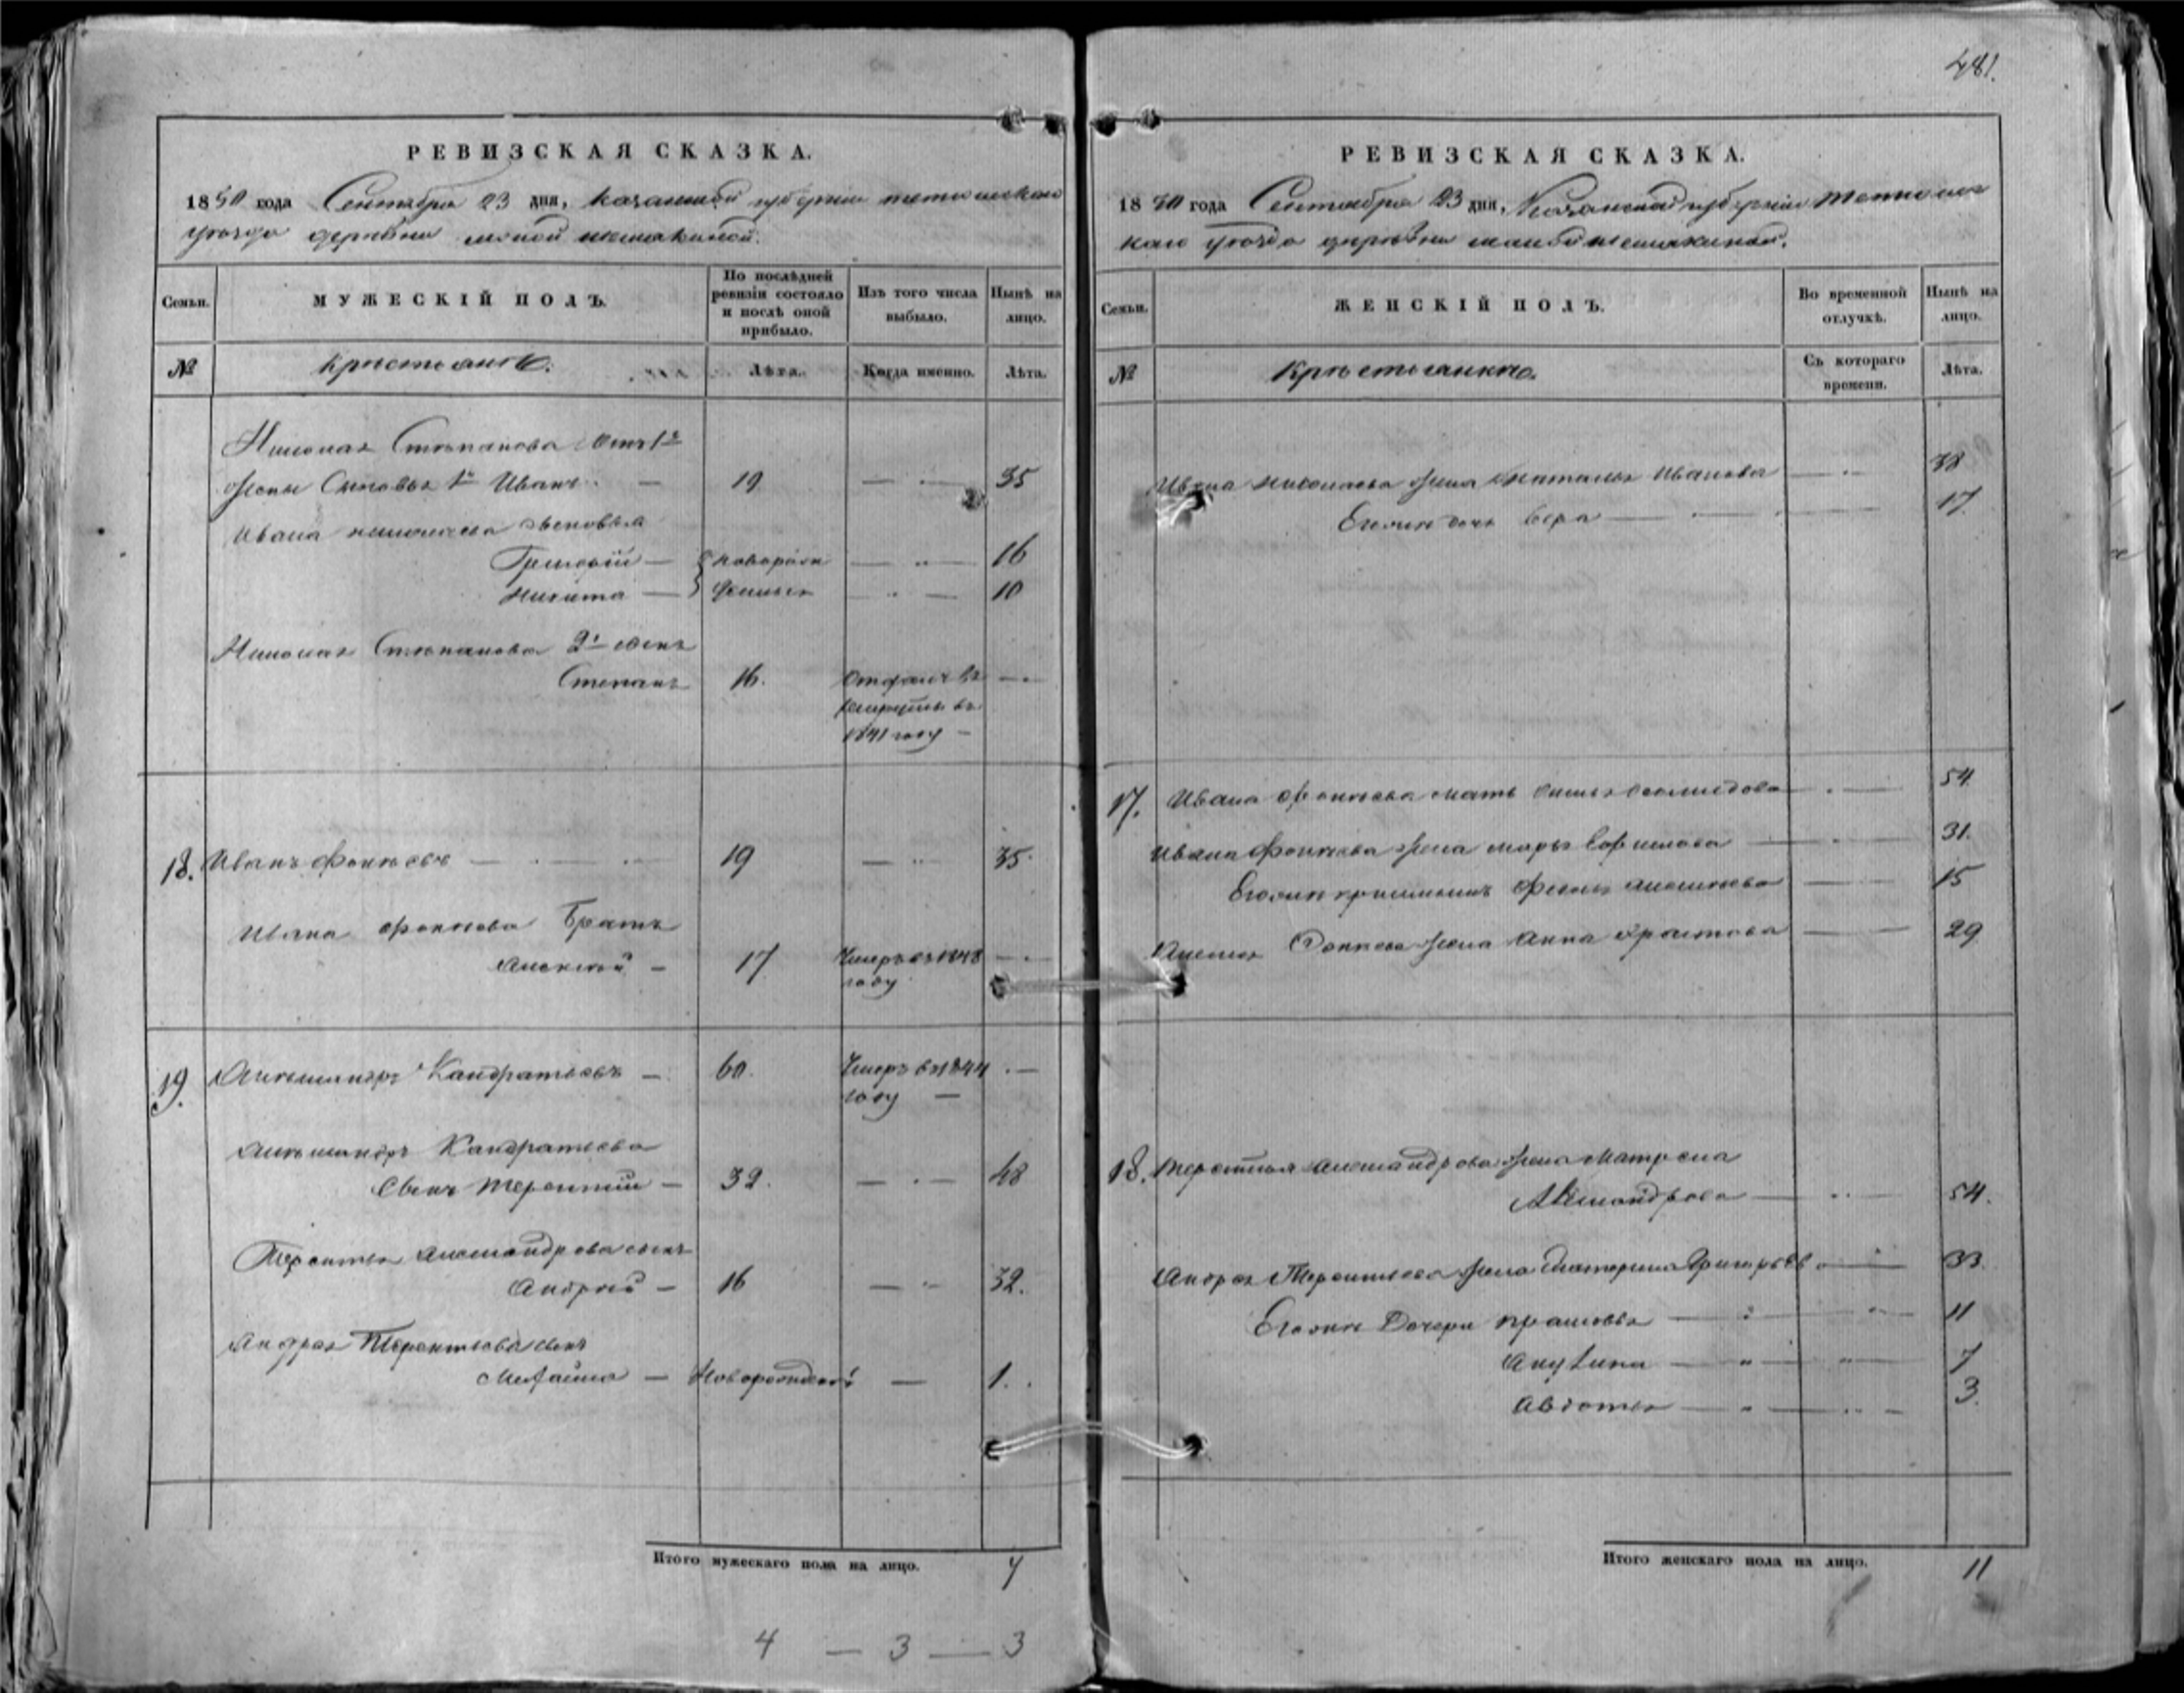 РЕВИЗСКАЯ СКАЗКА.
1850 года Сентября 23 дня, казанской губернiи тетюшскаго
уезда деревни
Семьи.
МУЖЕСКIЙ ПОЛЪ.
По послѣдней ревизiи состояло и послѣ оной прибыло.
Изъ того числа выбыло.
Нынѣ на лицо.
№
крестьяне.
Лѣта.
Когда именно.
Лѣта.
Николая Степанова отъ 1й
жены Сыновья 1й Иванъ — 19 — 35
Ивана николаева сыновья
Григорiй — новорож — 16
Никита — денные — 10
Николая Степанова 2й сынъ
Степанъ 16. отданъ въ —
рекруты въ
1841 году —
18. Иванъ Фокѣевъ — 19 — 35.
Ивана фокеева Братъ
Алексей — 17 Умеръ въ 1848 —
году
19. Александръ Кандратьевъ — 60. Умеръ въ 1844 —
году —
Александръ Кандратьева
Сынъ терентiй — 32. — 48
Терентья александрова сынъ
Андрей — 16 — 32.
Андрея Терентьева сынъ
Михайла — Новорожденый — 1.
Итого мужескаго пола на лицо. 7
4 — 3 — 3
481.
РЕВИЗСКАЯ СКАЗКА.
1850 года Сентября 23 дня, Казанской губернiи Тетюшс
каго уезда деревни
Семьи.
ЖЕНСКIЙ ПОЛЪ.
Во временной отлучкѣ.
Нынѣ на лицо.
№
Крестьянки.
Съ котораго времени.
Лѣта.
Ивана николаева жена наталья Иванова — 38
Его дочь Вера — 17.
17. Ивана фокеева мать — 54.
Ивана Фокеева жена марья — 31.
15
Анна — 29
18. Терентья александрова жена Матрена
Александрова — 54.
Андрея Терентьева жена Катерина Григорьев — 33.
Дочери прасковья — 11
Акулина — 7
Авдотья — 3.
Итого женскаго пола на лицо. 11